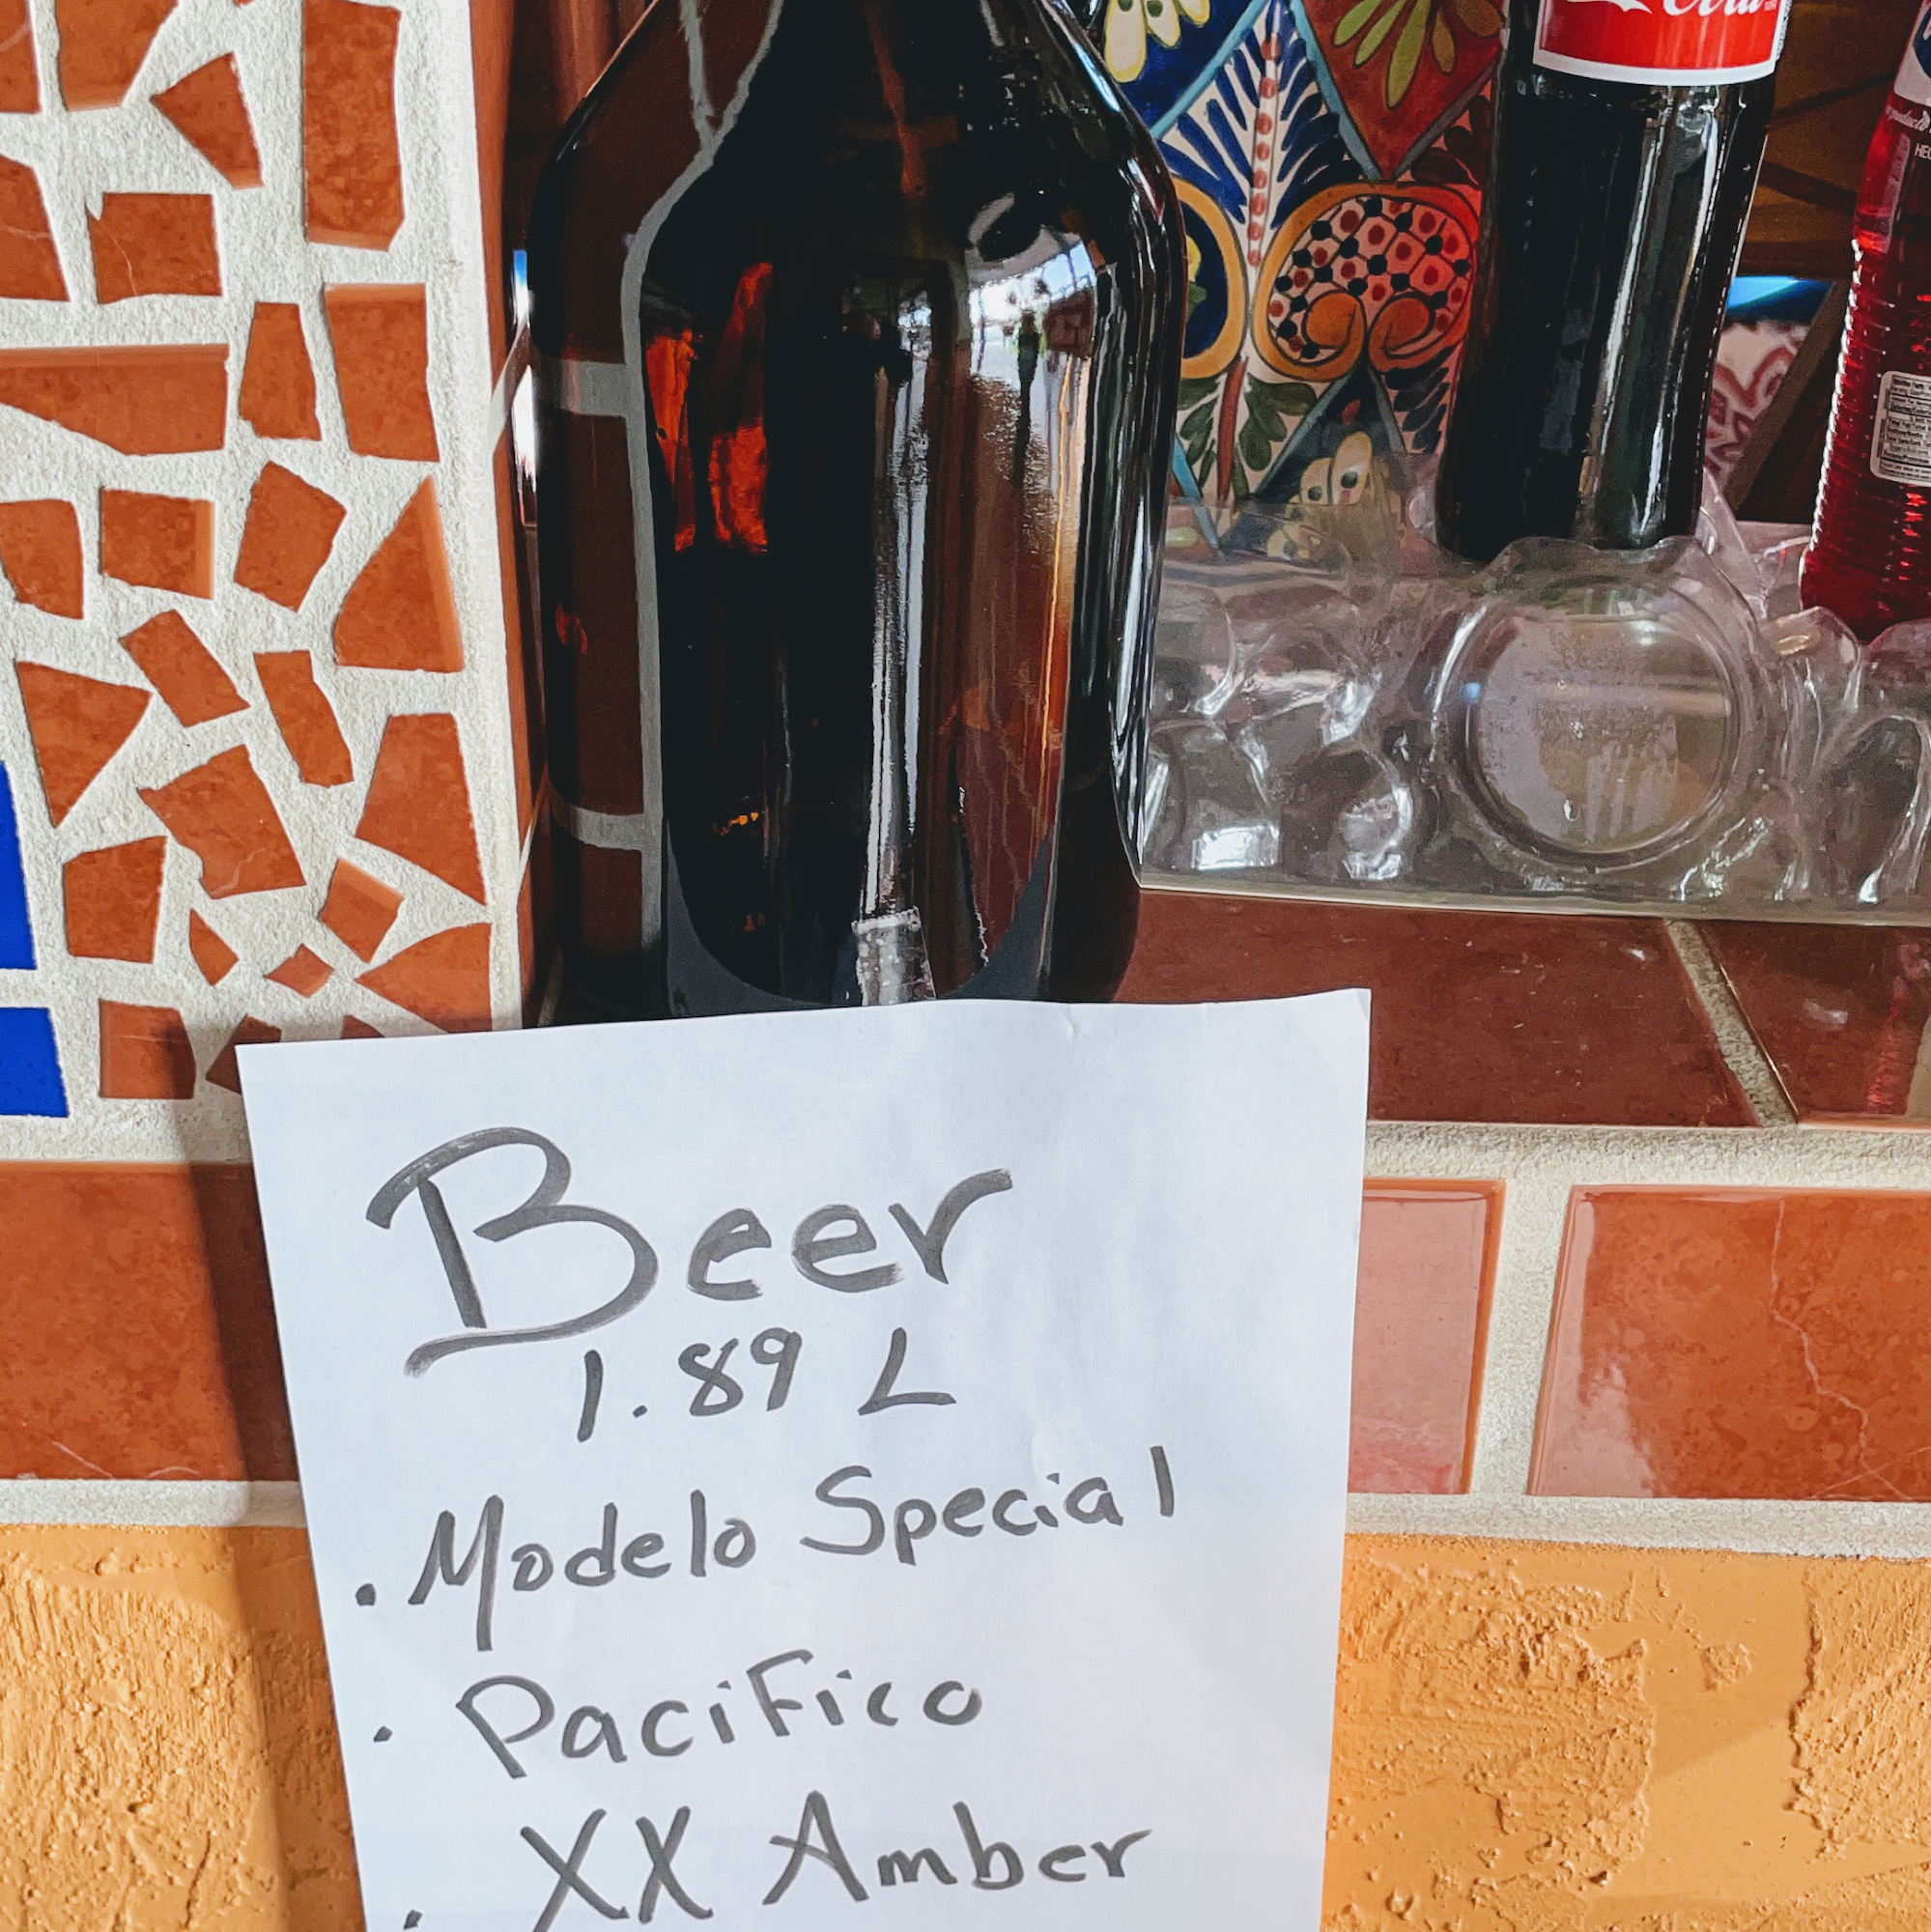 Cola
Beer
1.89 L
. Modelo Special
. PaciFico
. XX Amber